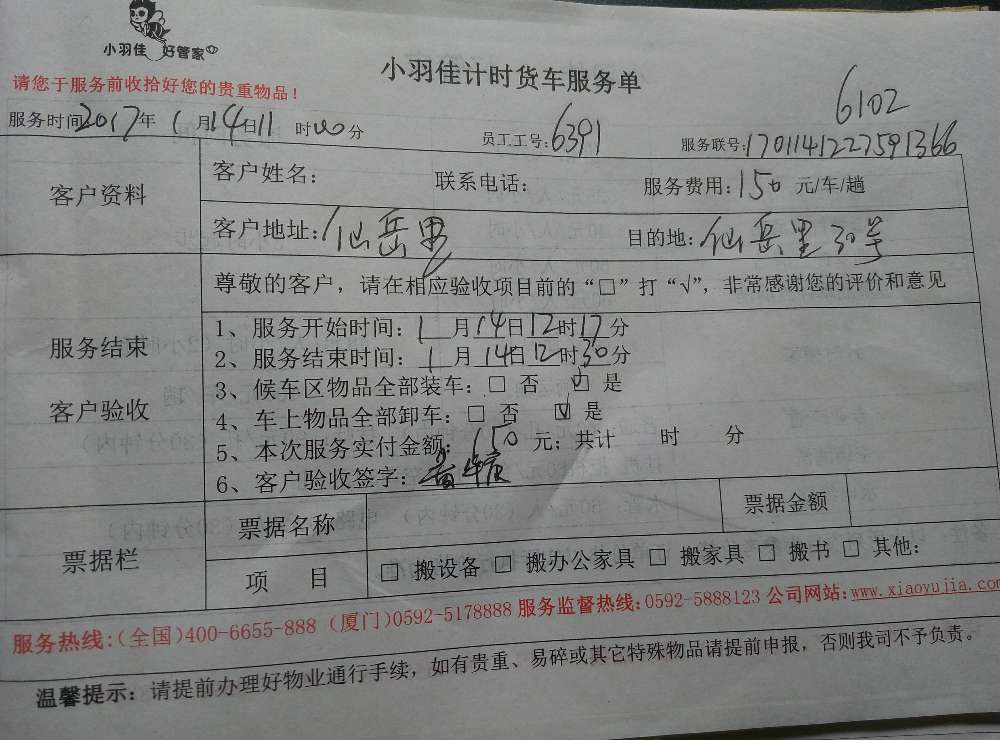 小羽佳 好管家
小羽佳计时货车服务单
请您于服务前收拾好您的贵重物品！
6102
服务时间2017年1月14日11时00分 员工工号:6391 服务联号:17011412227591366
客户资料
客户姓名： 联系电话： 服务费用：150元/车/趟
客户地址：仙岳里 目的地：仙岳里30号
服务结束
客户验收
尊敬的客户，请在相应验收项目前的“□”打“√”，非常感谢您的评价和意见
1、服务开始时间：1月14日12时17分
2、服务结束时间：1月14日12时30分
3、候车区物品全部装车：□ 否 ☑ 是
4、车上物品全部卸车：□ 否 ☑ 是
5、本次服务实付金额：150元；共计 时 分
6、客户验收签字：
票据栏
票据名称 票据金额
项 目 □ 搬设备 □ 搬办公家具 □ 搬家具 □ 搬书 □ 其他：
服务热线：(全国)400-6655-888 (厦门)0592-5178888 服务监督热线：0592-5888123 公司网站：www.xiaoyujia.com
温馨提示：请提前办理好物业通行手续，如有贵重、易碎或其它特殊物品请提前申报，否则我司不予负责。